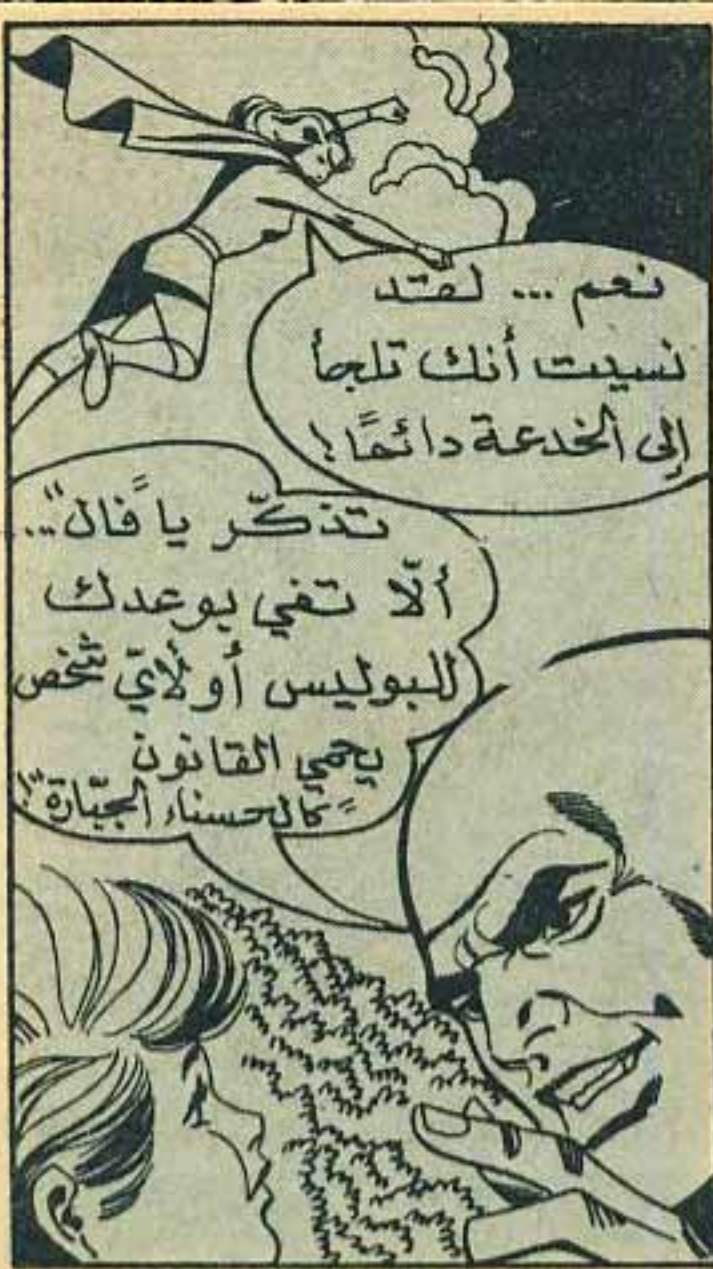 نعم ... لقد
نسيت أنك تلجأ
إلى الخدعة دائمًا!
تذكّر يا "فال"...
ألّا تفي بوعدك
للبوليس أو لأيّ شخص
يحمي القانون
"كالحسناء الجبّارة"!